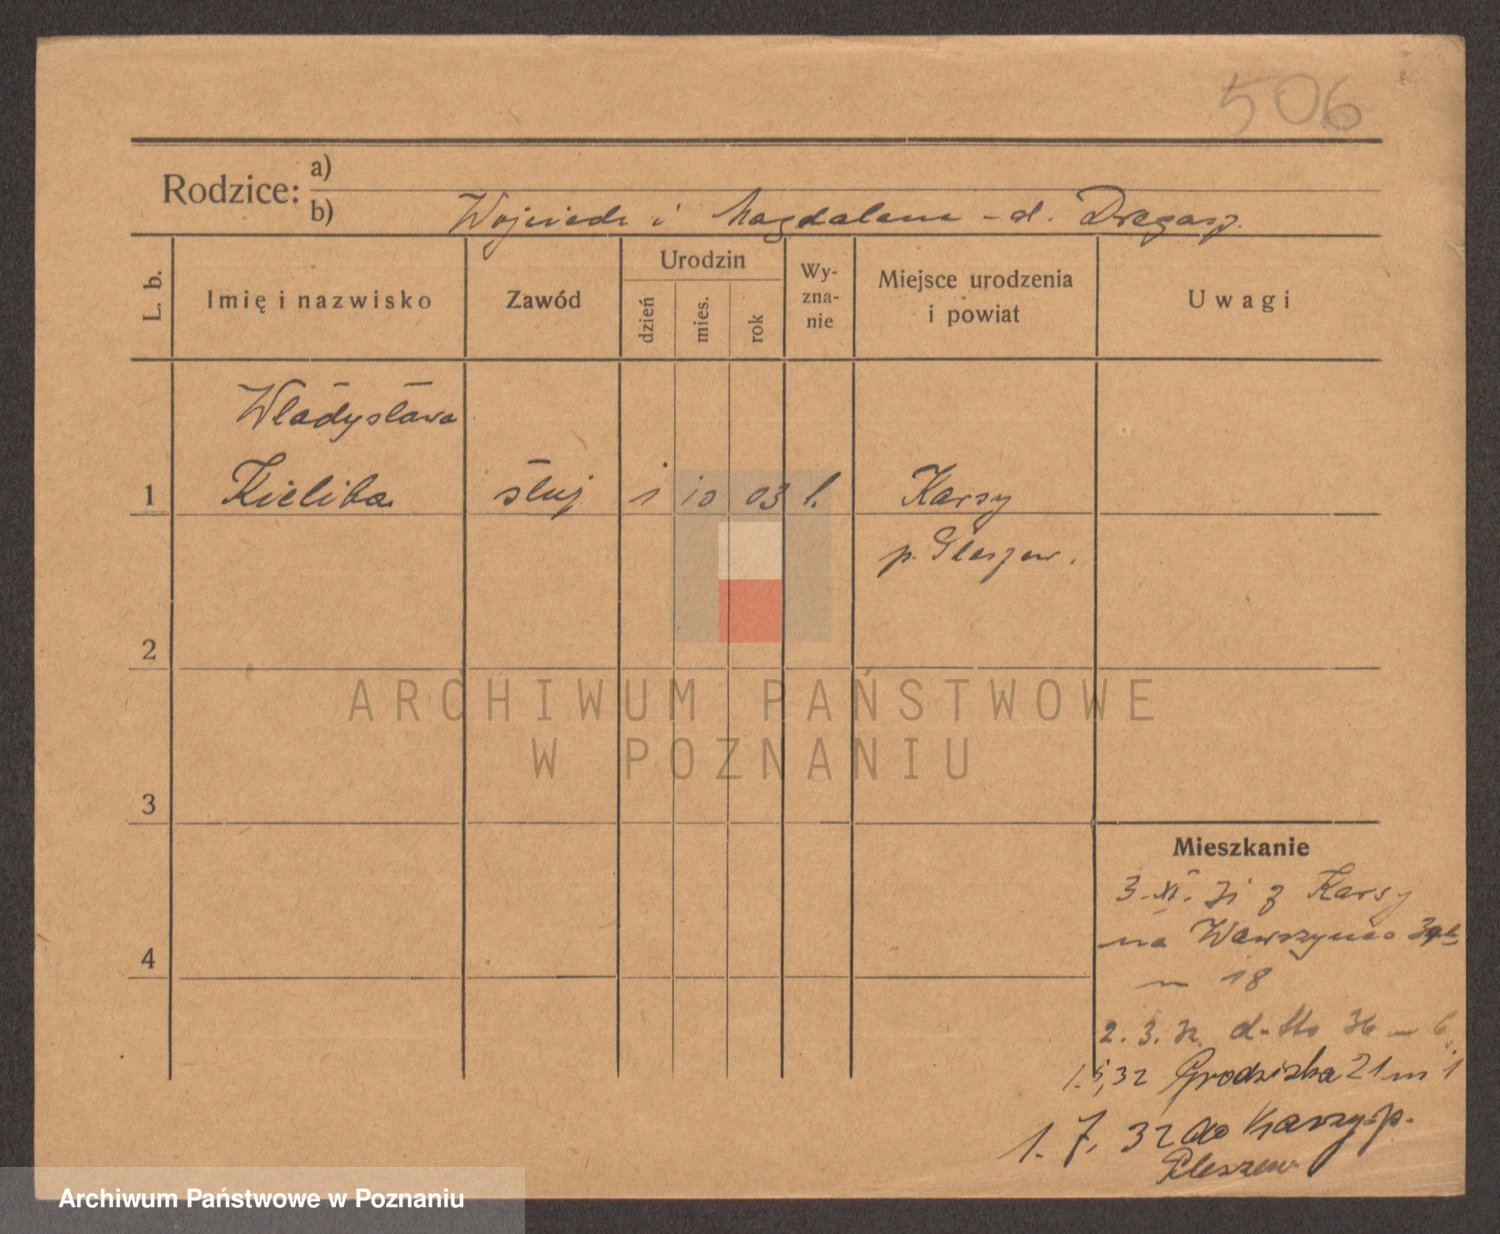 506
Rodzice: a)
b) Wojciech i Magdalena - d. Dregasz.
L. b.
Imię i nazwisko
Zawód
Urodzin
dzień
mies.
rok
Wy-
zna-
nie
Miejsce urodzenia
i powiat
Uwagi
Władysława
1 Kieliba służ 1 10 03 k. Karsy
p. Pleszew.
2
ARCHIWUM PAŃSTWOWE
W POZNANIU
3
Mieszkanie
3. XI. 31 z Karsy
4
na Wawrzyńca
m 18
2. 3. 32. d-tto 36 m 6
1.5,32 Grodziska 21 m 1
1. 7. 32 do Karsy p.
Pleszew
Archiwum Państwowe w Poznaniu